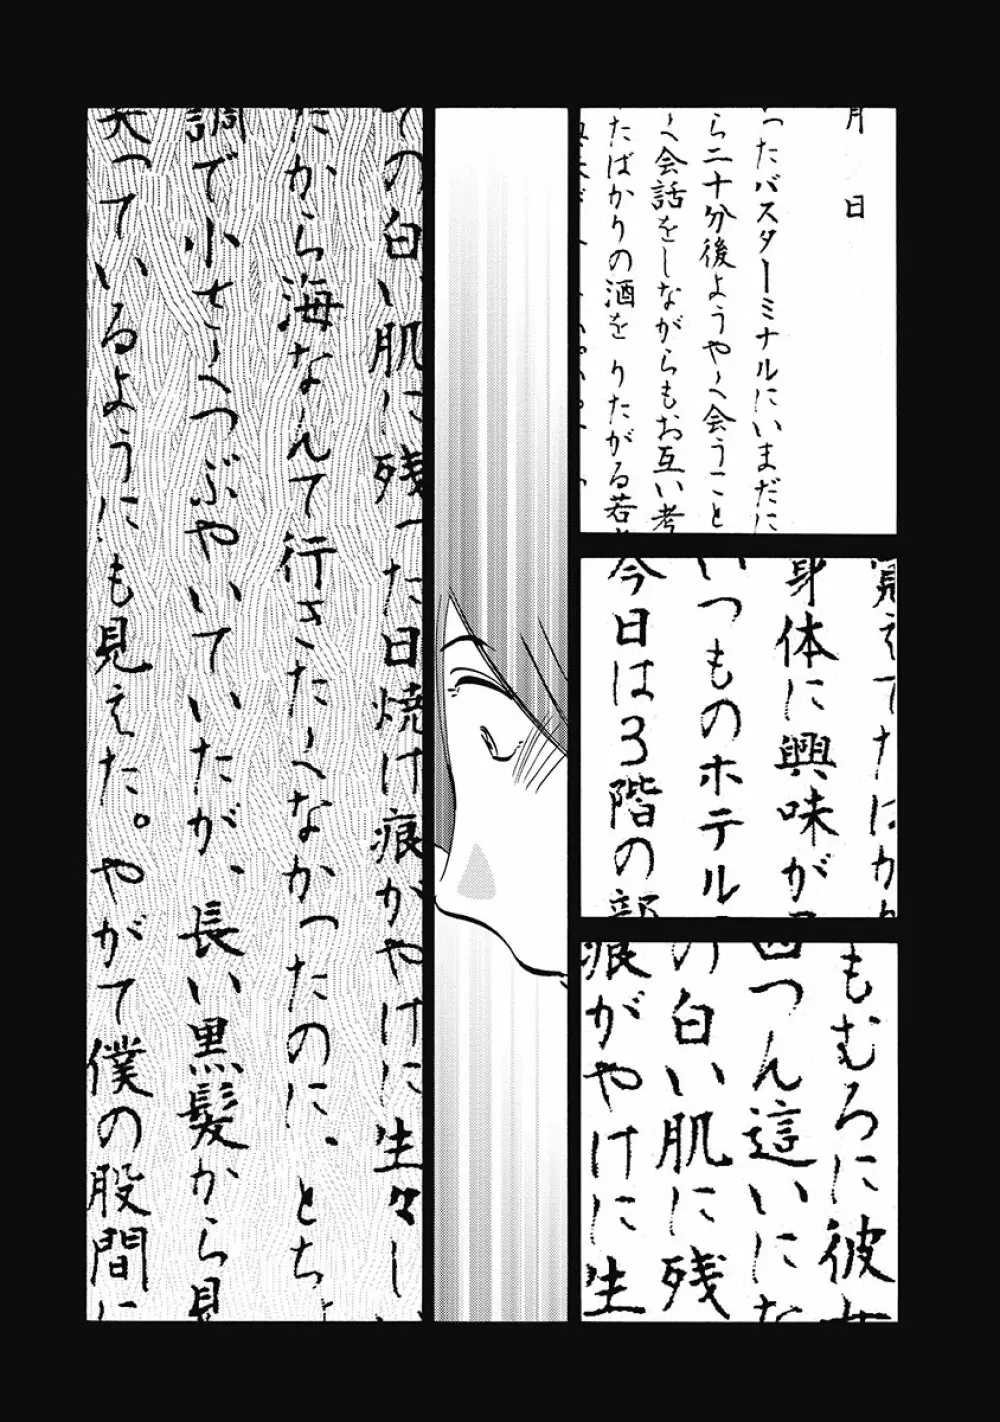 月　日
ったバスターミナルにいまだに
ら二十分後ようやく会うこと
く会話をしながらもお互い考
たばかりの酒を りたがる若
覚えてたばか
身体に興味が
いつものホテル
今日は3階の部
もむろに彼女
四つん這いにな
の白い肌に残
痕がやけに生
ての白い肌に残った日焼け痕がやけに生々し
だから海なんて行きたくなかったのに、とち
調で小さくつぶやいていたが、長い黒髪から見
笑っているようにも見えた。やがて僕の股間に